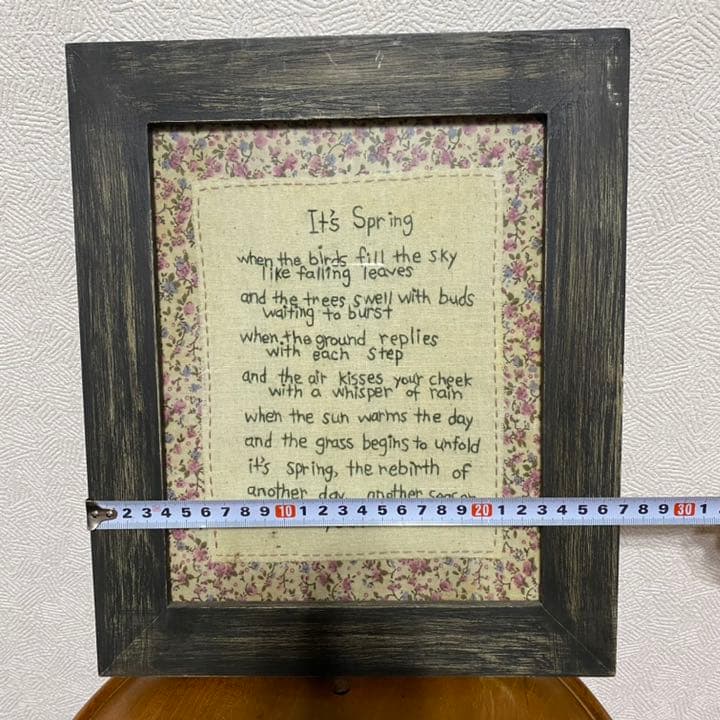 It's Spring
when the birds fill the sky
like falling leaves
and the trees swell with buds
waiting to burst
when the ground replies
with each step
and the air kisses your cheek
with a whisper of rain
when the sun warms the day
and the grass begins to unfold
it's spring, the rebirth of
another day, another season
2 3 4 5 6 7 8 9 10 1 2 3 4 5 6 7 8 9 20 1 2 3 4 5 6 7 8 9 30 1